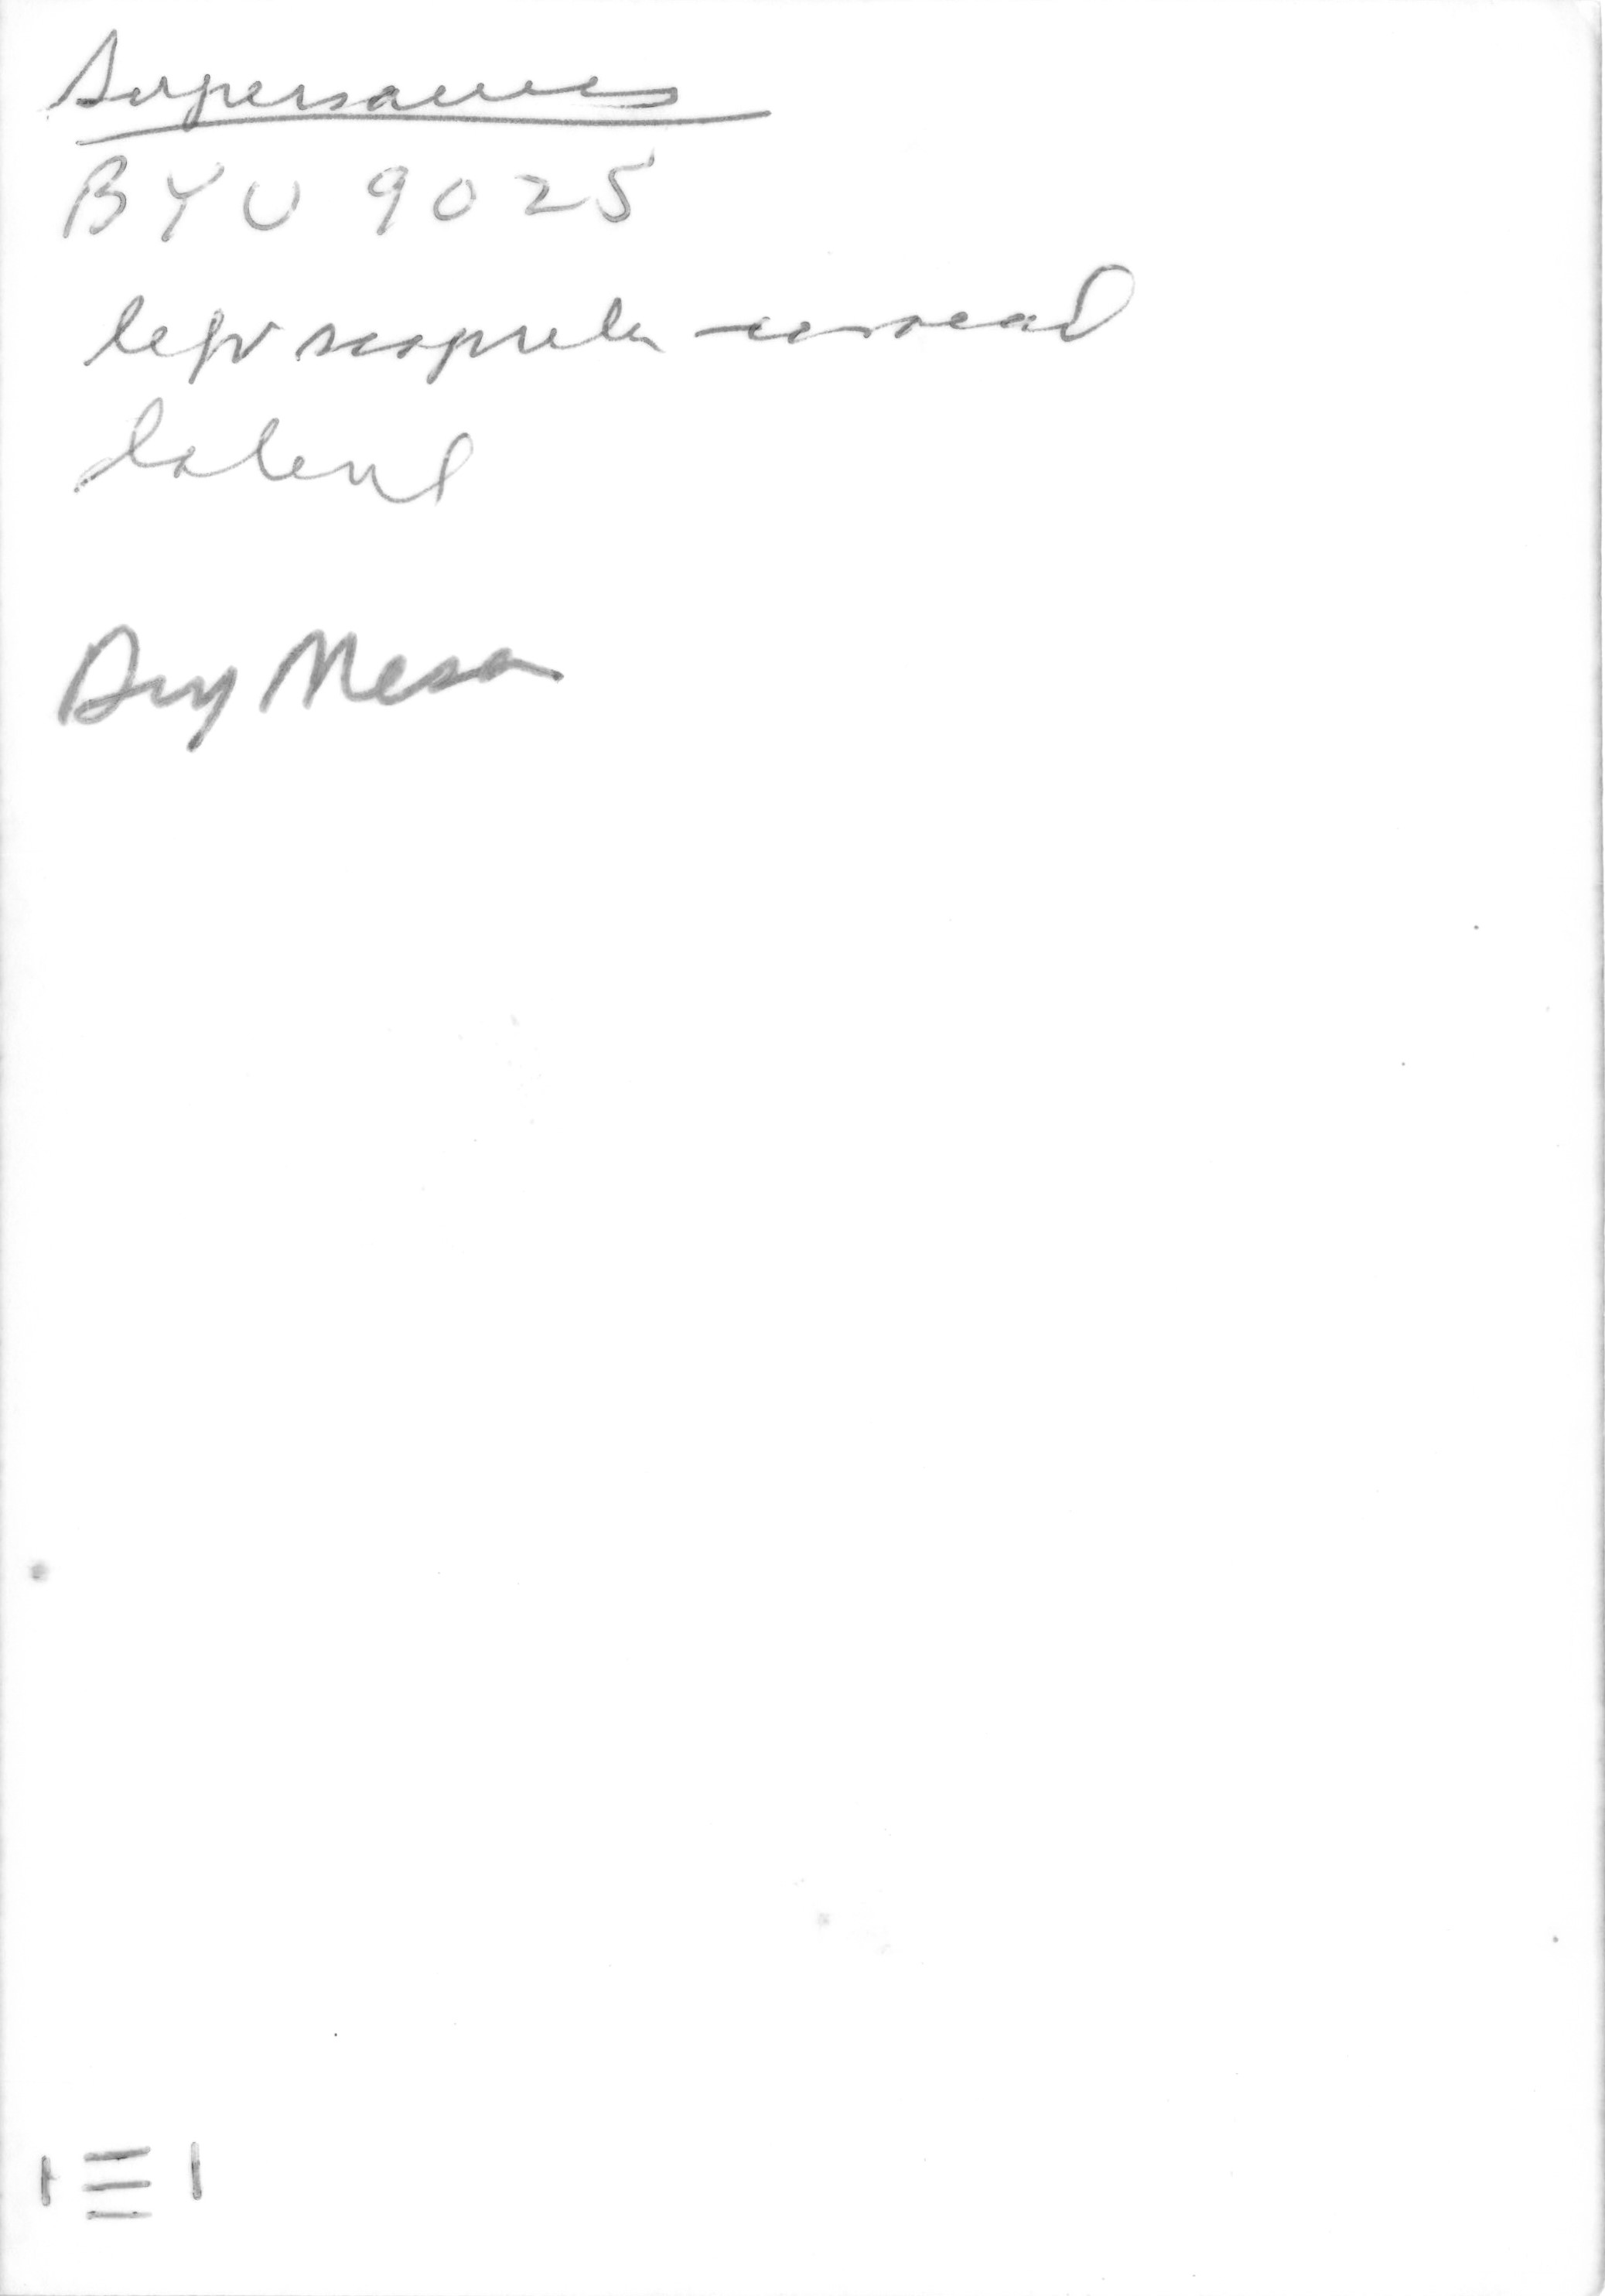 Supersaurus
BYU 9025
left scapula-coracoid
lateral
Dry Mesa